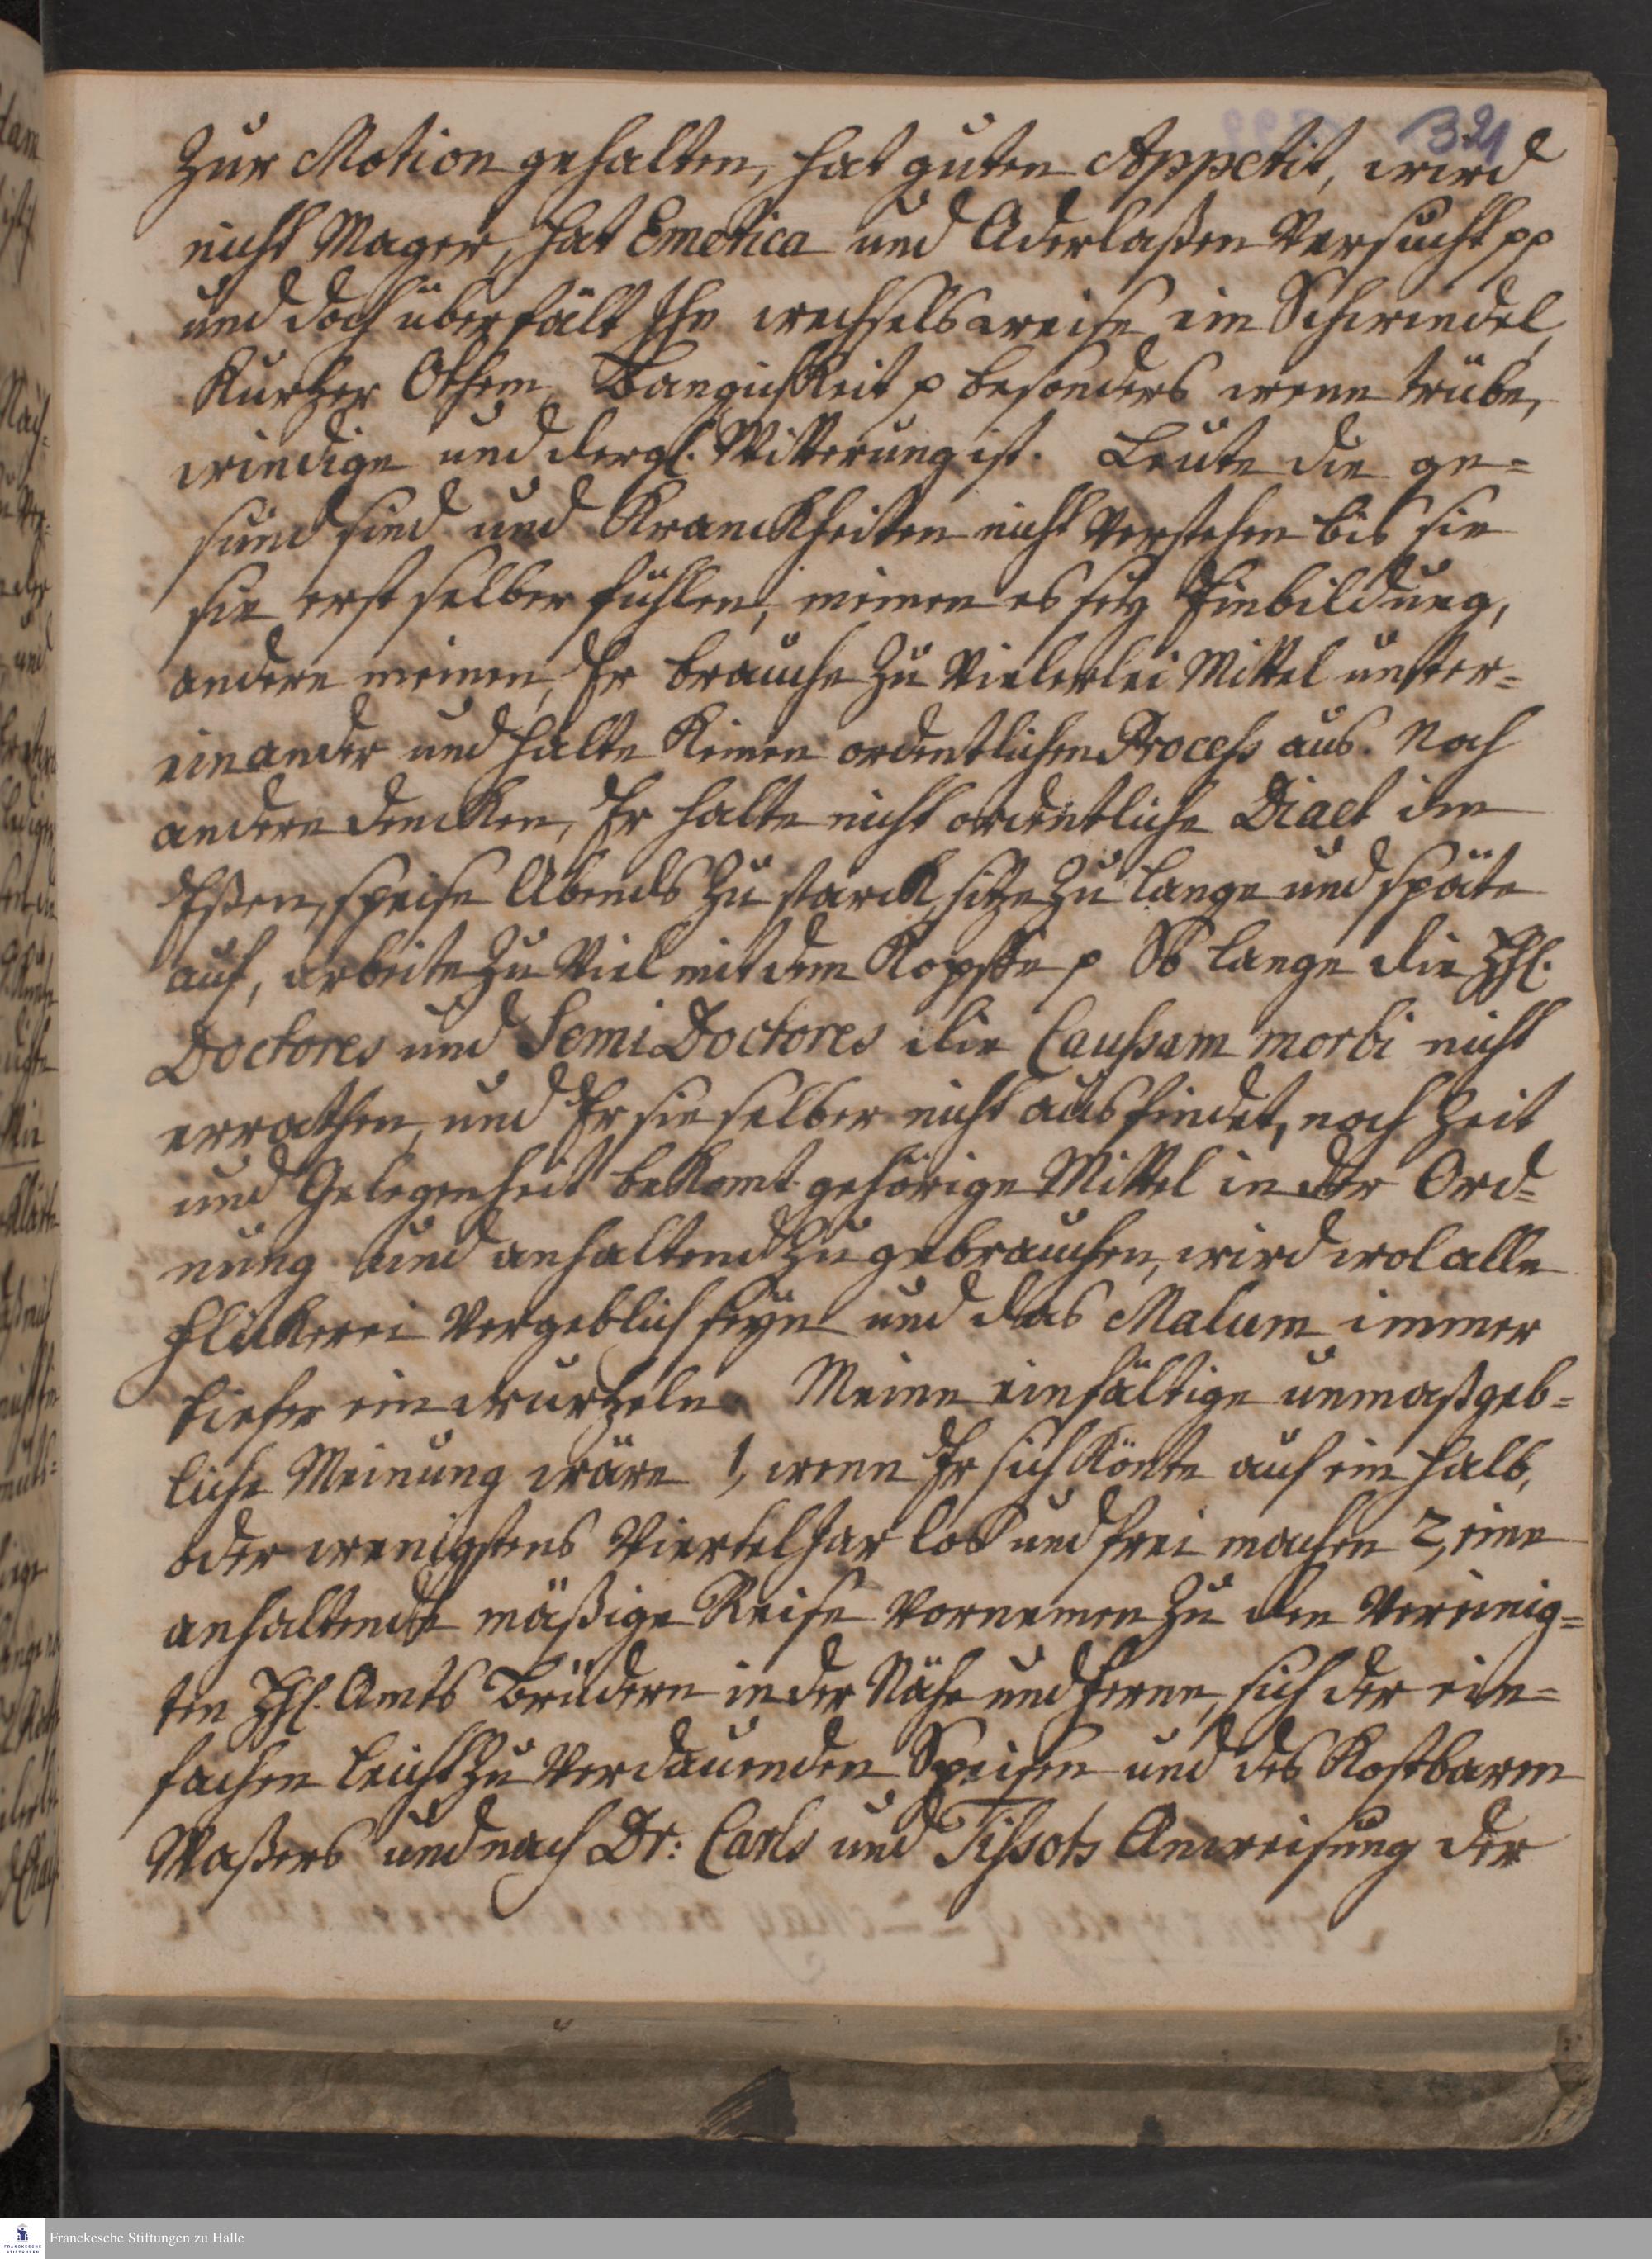 321
Zur Motion gehalten, hat guten Appetit, wird
nicht Mager, hat Emetica und Aderlaßen Versucht pp
und doch überfält Ihn wechselsweise ein Schwindel,
Kurtzer Othem, Bangichkeit p besonders wenn trübe,
windige und dergl. Witterung ist. Leute die ge=
sund sind und Kranckheiten nicht Verstehen bis sie
sie erst selber fühlen, meinen es sey Einbildung,
andere meinen, Er brauche zu Vielerlei Mittel unter=
einander und halte Keinen ordentlichen Process aus. Noch
andere dencken, Er halte nicht ordentliche Diaet im
Eßen, speise Abends zu starck, sitze zu lange und späte
auf, arbeite zu Viel mit dem Kopffe p So lange die HhE.
Doctores und Semi Doctores die Caussam morbi nicht
errathen, und Er sie selber nicht ausfindet, noch Zeit
und Gelegenheit bekomt gehörige Mittel in der Ord=
nung und anhaltend zu gebrauchen, wird wol alle
Flickerei Vergeblich seyn und das Malum immer
tiefer einwurtzeln. Meine einfältige unmaßgeb=
liche Meinung wäre 1, wenn Er sich Könte auf ein halb,
oder wenigstens Viertel Jar los und frei machen 2, eine
anhaltende mäßige Reise Vornemen zu den Vereinig=
ten HhE. Amts Brüdern in der Nähe und Ferne, sich der ein=
fachen leicht zu Verdauenden Speisen und des Kostbaren
Waßers und nach Dr: Carls und Tissots Anweisung der
Franckesche Stiftungen zu Halle